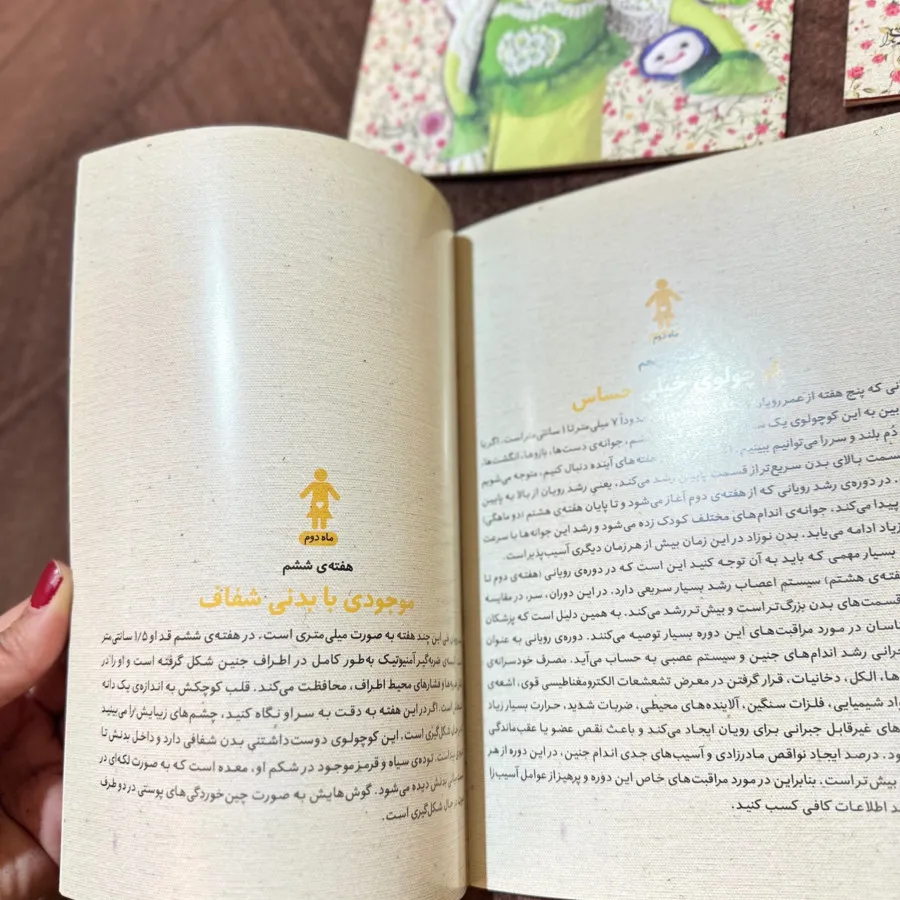 ماه دوم
چولوی خیلی حساس
نی که پنج هفته از عمر رویان حدوداً ۷ میلی‌متر تا ۱ سانتی‌متر است. اگر با
بین به این کوچولوی یک
دُم بلند و سر را می‌توانیم ببینیم. جوانه‌ی دست‌ها، بازوها، انگشت‌ها،
هفته‌های آینده دنبال کنیم، متوجه می‌شویم
سمت بالای بدن سریع‌تر از قسمت پایین رشد می‌کند، یعنی رشد رویان از بالا به پایین
. در دوره‌ی رشد رویانی که از هفته‌ی دوم آغاز می‌شود و تا پایان هفته‌ی هشتم (دو ماهگی)
پیدا می‌کند، جوانه‌ی اندام‌های مختلف کودک زده می‌شود و رشد این جوانه‌ها با سرعت
زیاد ادامه می‌یابد. بدن نوزاد در این زمان بیش از هر زمان دیگری آسیب‌پذیر است.
بسیار مهمی که باید به آن توجه کنید این است که در دوره‌ی رویانی (هفته‌ی دوم تا
فته‌ی هشتم) سیستم اعصاب رشد بسیار سریعی دارد. در این دوران، سر، در مقایسه
قسمت‌های بدن بزرگ‌تر است و بیش‌تر رشد می‌کند. به همین دلیل است که پزشکان
ناسان در مورد مراقبت‌های این دوره بسیار توصیه می‌کنند. دوره‌ی رویانی به عنوان
حرانی رشد اندام‌های جنین و سیستم عصبی به حساب می‌آید. مصرف خودسرانه‌ی
ها، الکل، دخانیات، قرار گرفتن در معرض تشعشعات الکترومغناطیسی قوی، اشعه‌ی
واد شیمیایی، فلزات سنگین، آلاینده‌های محیطی، ضربات شدید، حرارت بسیار زیاد
های غیرقابل جبرانی برای رویان ایجاد می‌کند و باعث نقص عضو یا عقب‌ماندگی
ود. درصد ایجاد نواقص مادرزادی و آسیب‌های جدی اندام جنین، در این دوره از هر
بیش‌تر است. بنابراین در مورد مراقبت‌های خاص این دوره و پرهیز از عوامل آسیب‌زا
د اطلاعات کافی کسب کنید.
ماه دوم
هفته‌ی ششم
موجودی با بدنی شفاف
این چند هفته به صورت میلی‌متری است. در هفته‌ی ششم قد او ۱/۵ سانتی متر
ضربه‌گیر آمنیوتیک به‌طور کامل در اطراف جنین شکل گرفته است و او را در
و فشارهای محیط اطراف، محافظت می‌کند. قلب کوچکش به اندازه‌ی یک دانه
است. اگر در این هفته به دقت به سر او نگاه کنید، چشم‌های زیبایش را می‌بینید
شکل‌گیری است. این کوچولوی دوست‌داشتنی بدن شفافی دارد و داخل بدنش تا
توده‌ی سیاه و قرمز موجود در شکم او، معده است که به صورت لکه‌ای در
بدنش دیده می‌شود. گوش‌هایش به صورت چین‌خوردگی‌های پوستی در دو طرف
حال شکل‌گیری است.